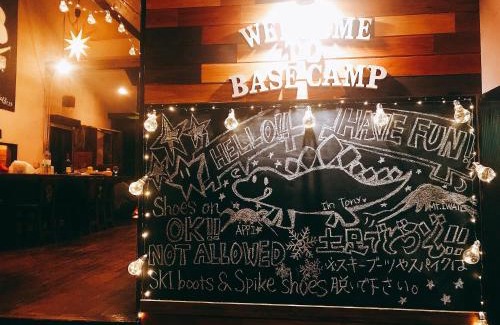 WELCOME
TO
BASE CAMP
HELLO!! HAVE FUN!
Im Tony.
Mr.IWAIZ
Shoes on
APPI
OK!! 土足でどうぞ!!
NOT ALLOWED ※スキーブーツやスパイクは
SKI boots & Spike shoes 脱いで下さい。